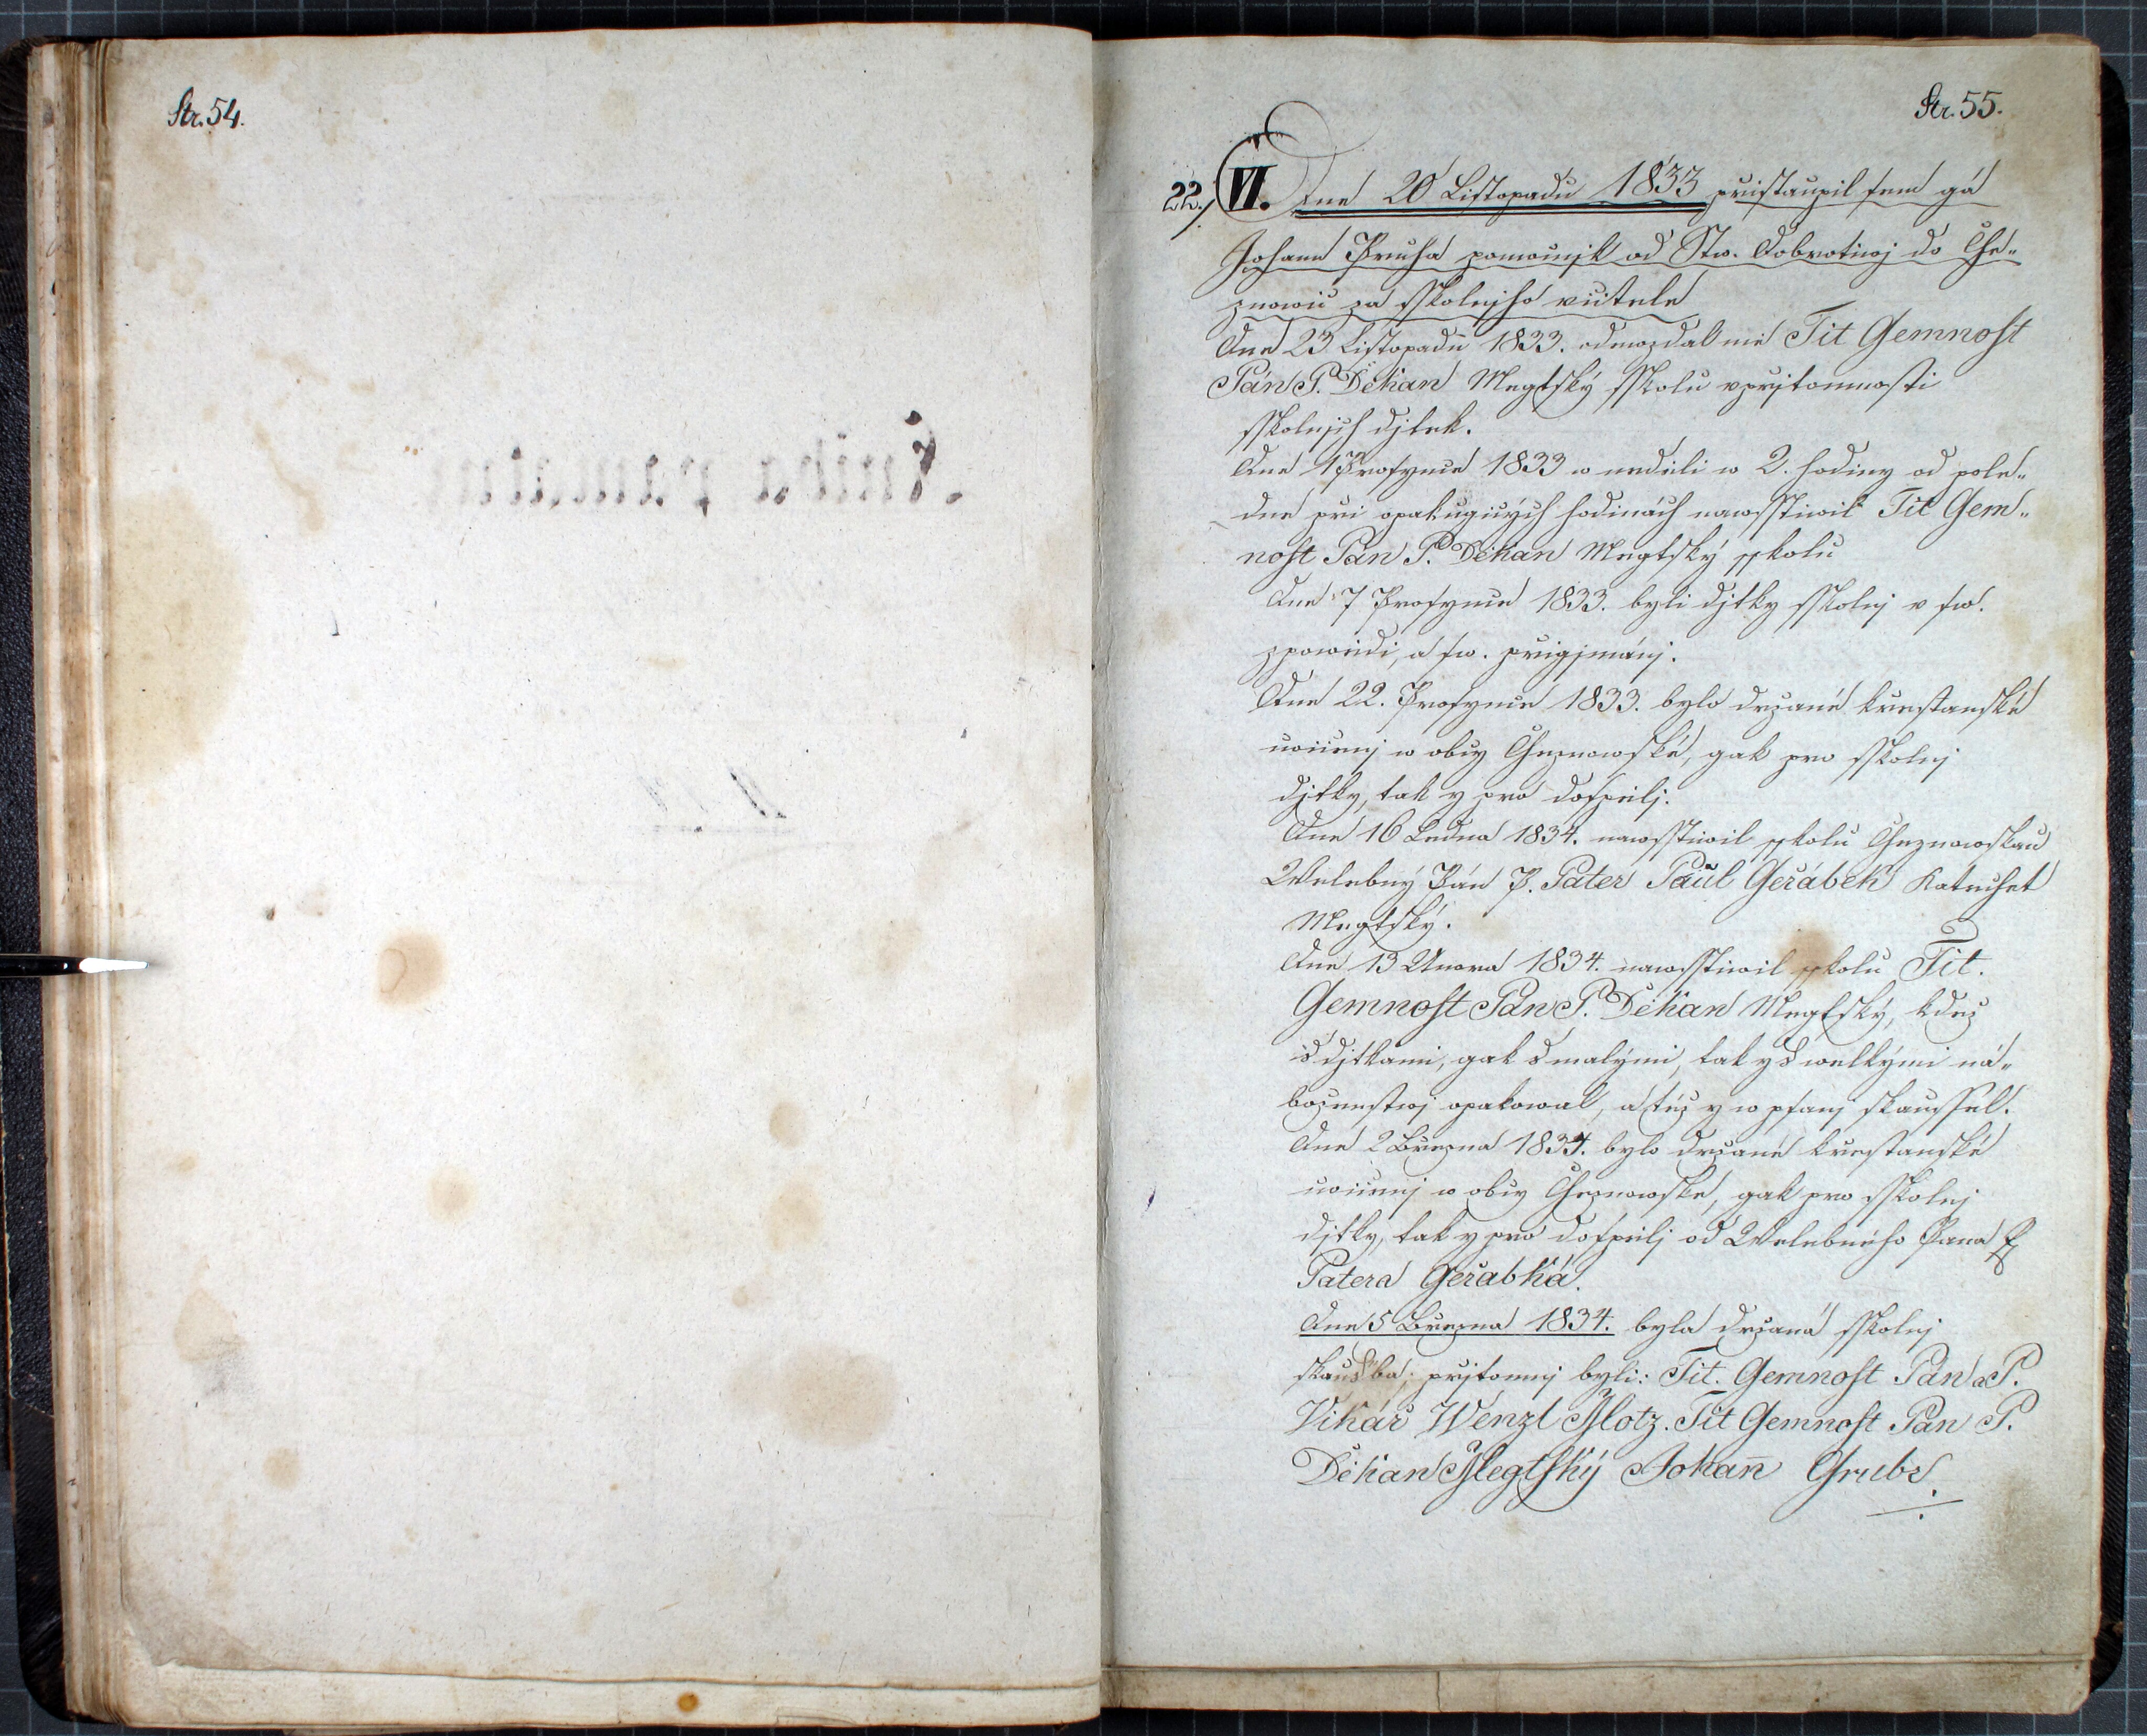 Str. 54.
Str. 55.
22./ VI. Dne 20 Listopadu 1833 přistaupil sem gá
Johann Pruha pomocnjk od Stw. Dobrotiwj do Che„
znowic za sskolnjho učitele
Dne 23 Listopadu 1833. odewzdal mě Tit Gemnost
Pán P. Děkan Megtský sskolu v přjtomnosti
sskolnjch djtek.
Dne 1 Prosynce 1833 w neděli w 2. hodiny od pole„
dne při opakugicých hodinách nawsstiwil Tit Gem„
nost Pan P. Děkan Megtský sskolu
Dne 7 Prosynce 1833. byli djtky sskolnj v sw.
zpowědi, a sw. přigjmánj.
Dne 22. Prosynce 1833. bylo držané křestanské
cwičenj w obcy Cheznowské, gak pro sskolnj
djtky, tak y pro dospělj.
Dne 16 Ledna 1834. nawsstiwil sskolu Cheznowskau
Welebný Pán P. Pater Paul Geřábek Katechet
Megtský.
Dne 13 Unora 1834. nawsstiwil sskolu Tit.
Gemnost Pán P. Děkan Megtský, kdež
s djtkami, gak s malými, tak y s welkými ná„
boženstwj opakowal, a též y w psanj skaussel.
Dne 2 Března 1834. bylo držané křestanské
cwičenj w obcy Cheznowské, gak pro sskolnj
djtky, tak y pro dospělj od Welebného Pana P.
Patera Geřabka.
Dne 5 Března 1834. byla držaná sskolnj
skaussba; přjtomnj byli: Tit. Gemnost Pán P.
Vikár Wenzl Motz. Tit Gemnost Pan P.
Děkan Megtský Johan̄ Grube.